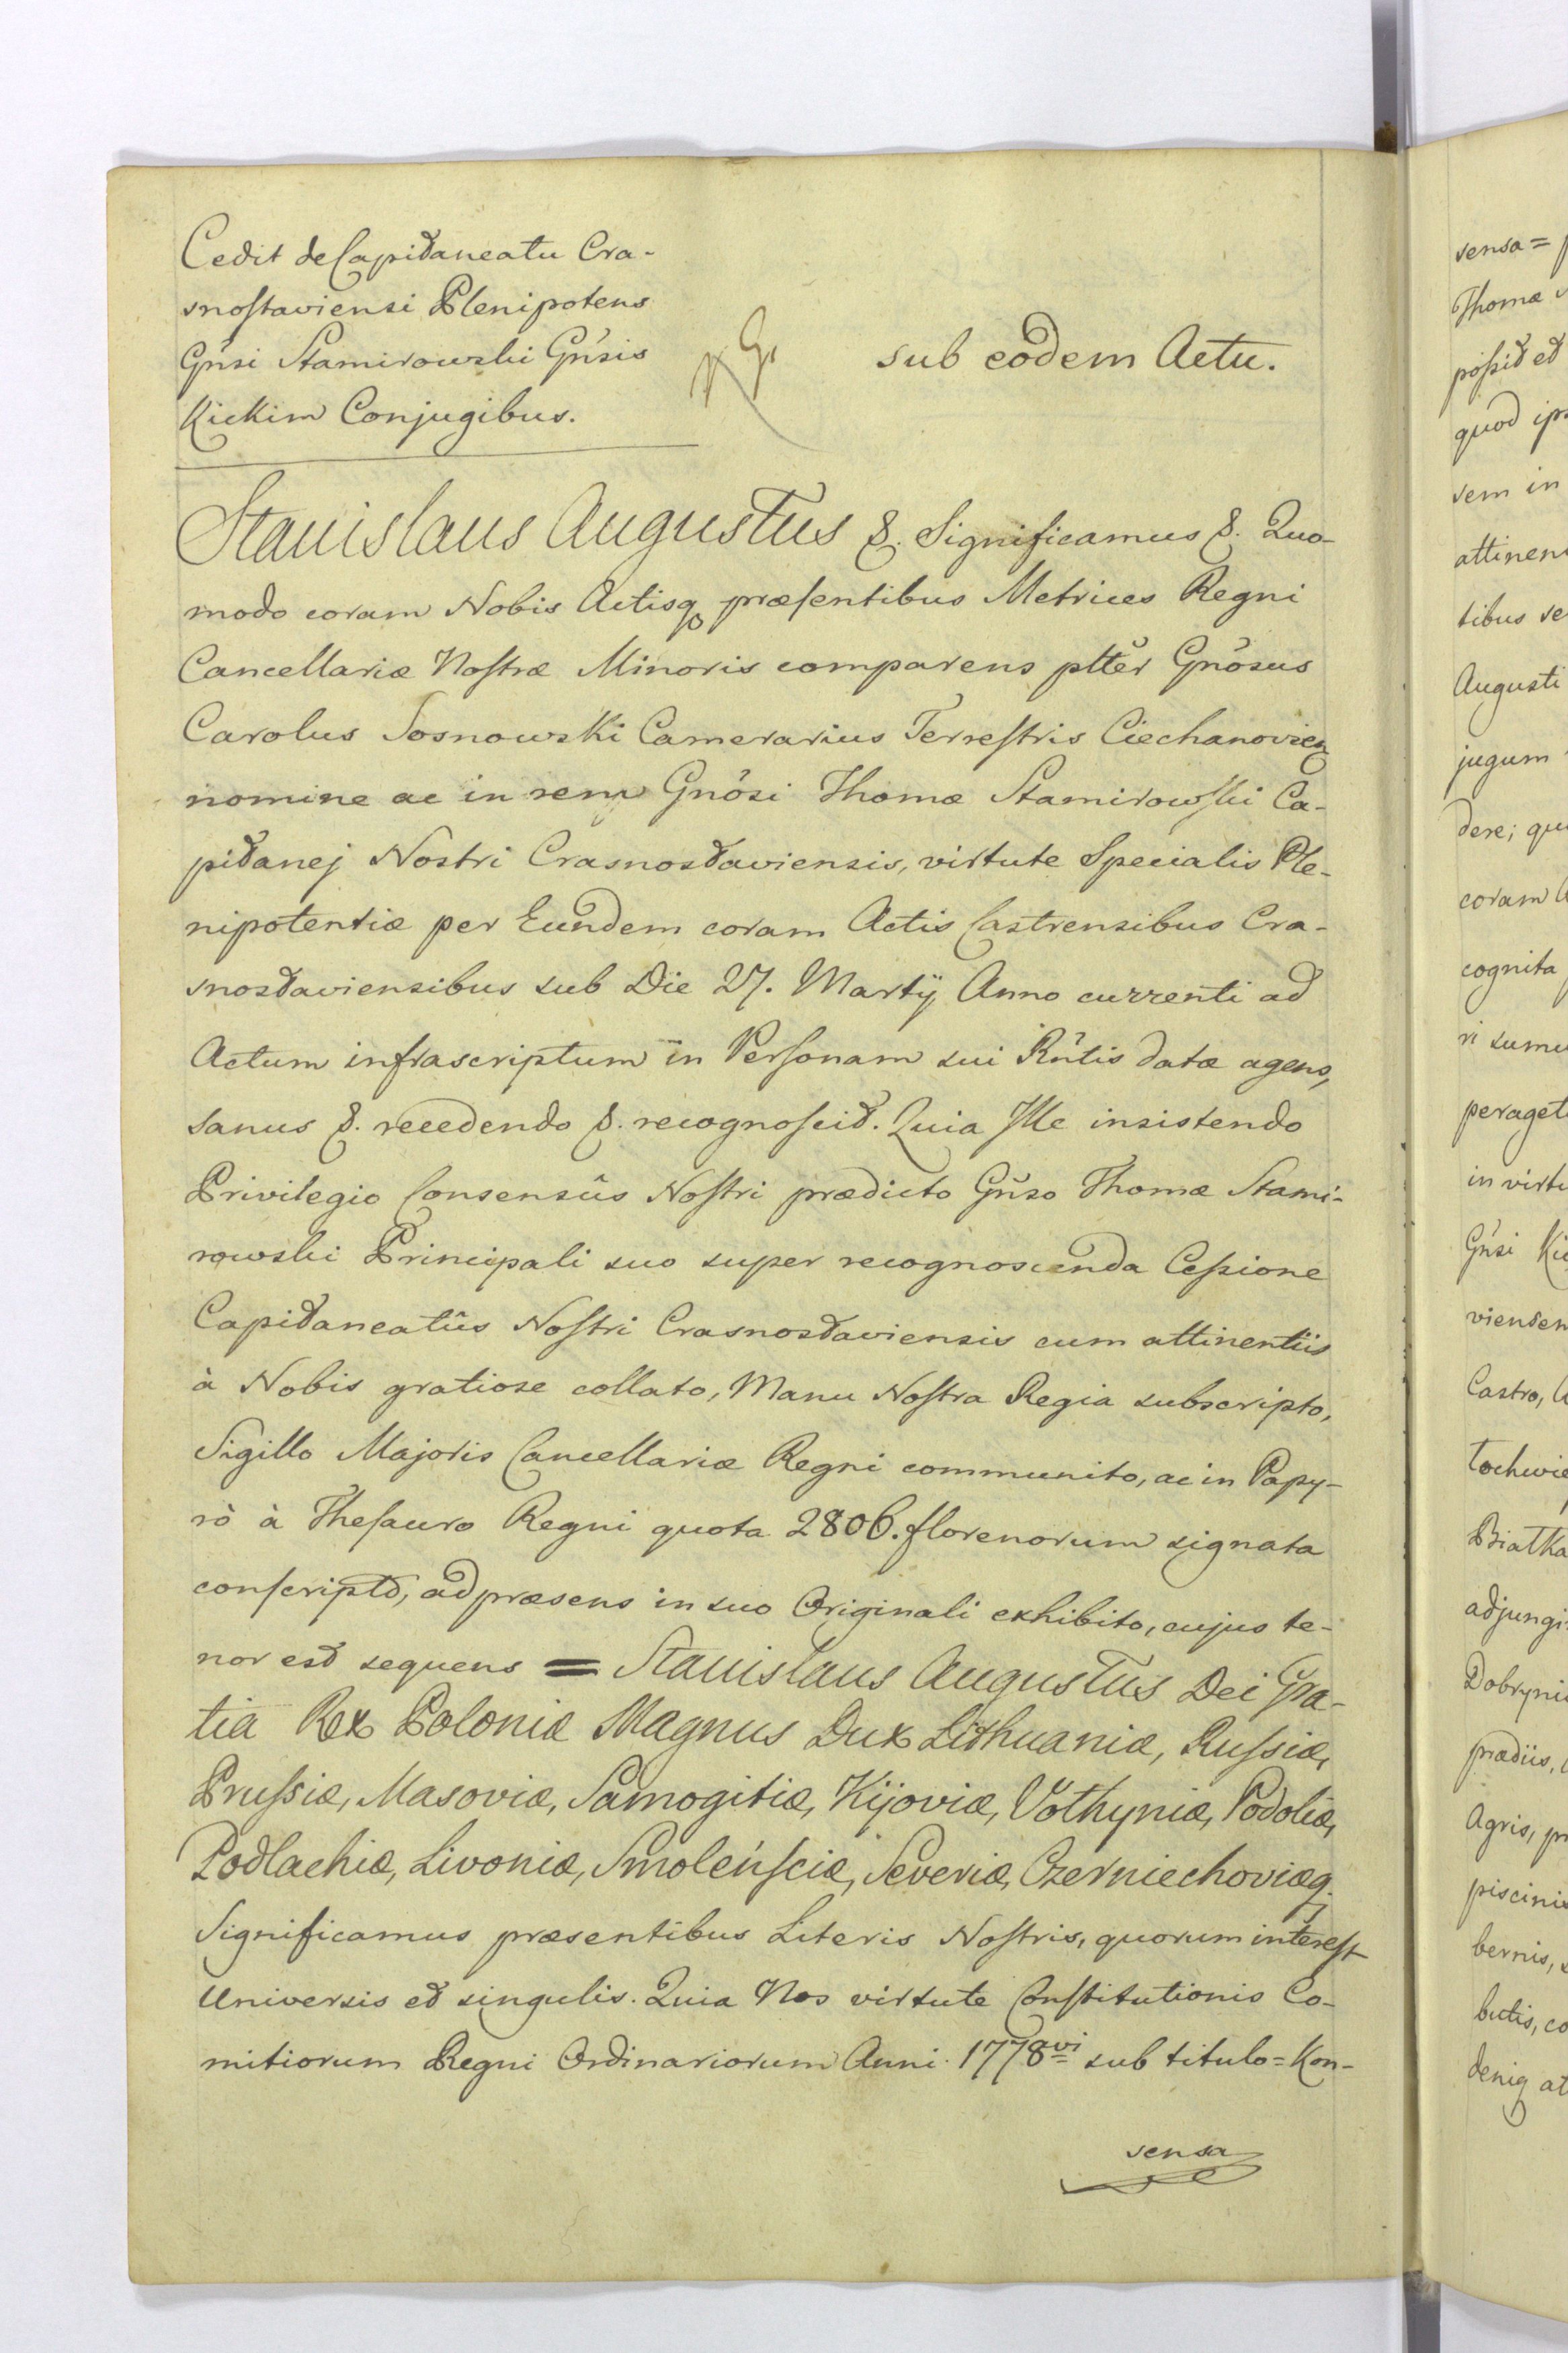 Cedit de Capitaneatu Cra-
snostaviensi Plenipotens
Gnsi Stamirowski Gnsis
Kickim Conjugibus.
sub eodem Actu.
Stanislaus Augustus &. Significamus &. Quo-
modo coram Nobis Actisq præsentibus Metrices Regni
Cancellariæ Nostræ Minoris comparens pltter Gnosus
Carolus Sosnowski Camerarius Terrestris Ciechanovien
nomine ac in rem Gnosi Thomæ Stamirowski Ca-
pitanej Nostri Crasnostaviensis, virtute Specialis Ple-
nipotentiæ per Eundem coram Actis Castrensibus Cra-
snostaviensibus sub Die 27. Martij Anno currenti ad
Actum infrascriptum in Personam sui Rntis datæ agens,
sanus &. recedendo &. recognoscit. Quia Ille insistendo
Privilegio Consensûs Nostri prædicto Gnso Thomæ Stami-
rowski Principali suo super recognoscenda Cessione
Capitaneatûs Nostri Crasnostaviensis cum attinentiis
à Nobis gratiose collato, Manu Nostra Regia subscripto,
Sigillo Majoris Cancellariæ Regni communito, ac in Papy-
rò à Thesauro Regni quota 2806. florenorum signata
conscripto, ad præsens in suo Originali exhibito, cujus te-
nor est sequens = Stanislaus Augustus Dei Gra-
tia Rex Poloniæ Magnus Dux Lithuaniæ, Russiæ,
Prussiæ, Masoviæ, Samogitiæ, Kijoviæ, Vołhyniæ, Podoliæ,
Podlachiæ, Livoniæ, Smolensciæ, Severiæ, Czerniechoviæq
Significamus præsentibus Literis Nostris, quorum interest
Universis et singulis. Quia Nos virtute Constitutionis Co-
mitiorum Regni Ordinariorum Anni 1778vi sub titulo = Kon-
sensa
sensa =
Thomæ
possid et
quod
sem in
attinen
tibus se
Augusti
jugum
dere; qu
coram
cognita
ri sumu
peraget
in virtu
Gnsi Kic
viensem
Castro,
Tochwie
Białka
adjungi
Dobryni
prædiis,
Agris, pr
piscinis
bernis,
butis, co
deniq at